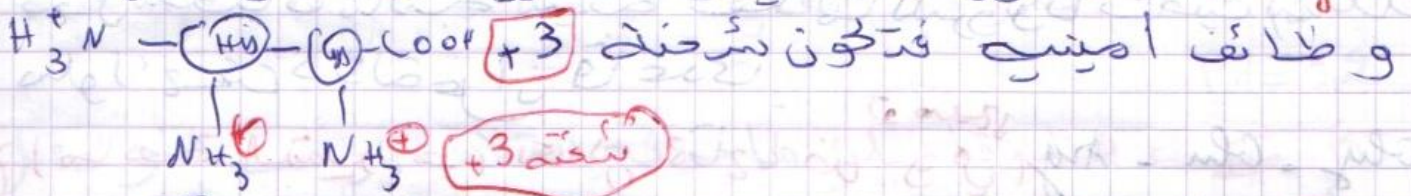 وظائف أمينيه فتكون شحنته +3 H₃N⁺ – His – Lys – COOH
NH₃⊕ NH₃⊕ شحنته 3+